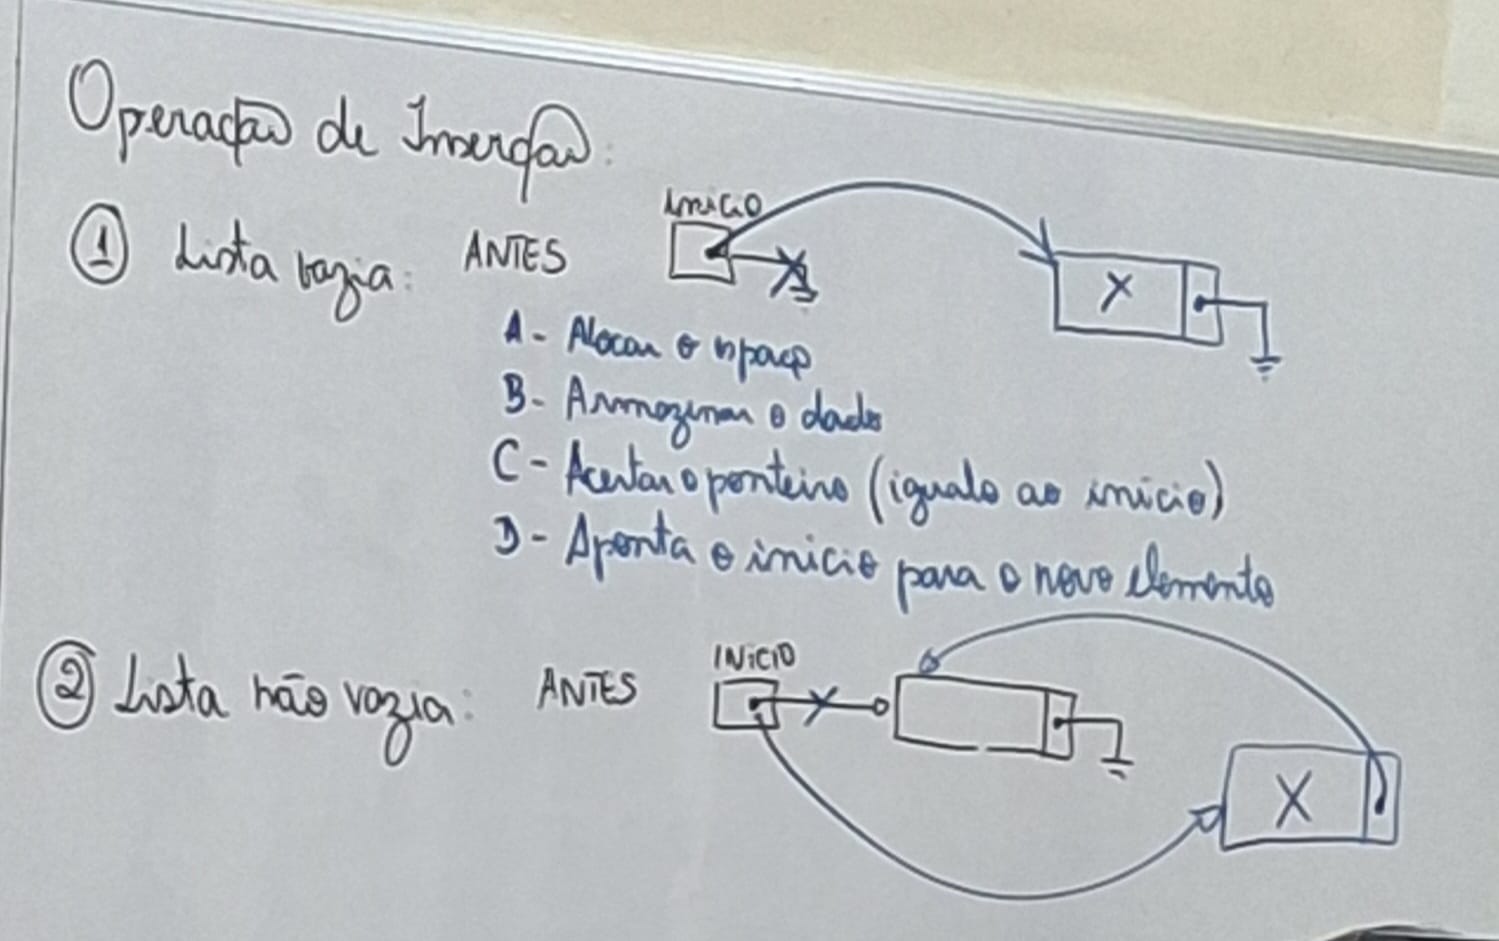 Operação de Inserção:
INICIO
① Lista vazia: ANTES
X
A - Alocar o espaço
B - Armazenar o dado
C - Acertar o ponteiro (igualo ao inicio)
D - Aponta o inicio para o novo elemento
INICIO
② Lista não vazia: ANTES
X